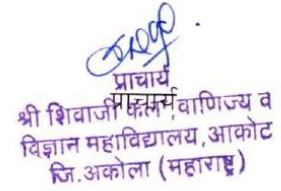 प्राचार्य
प्राचार्य
श्री शिवाजी कला, वाणिज्य व
विज्ञान महाविद्यालय, आकोट
जि.अकोला (महाराष्ट्र)